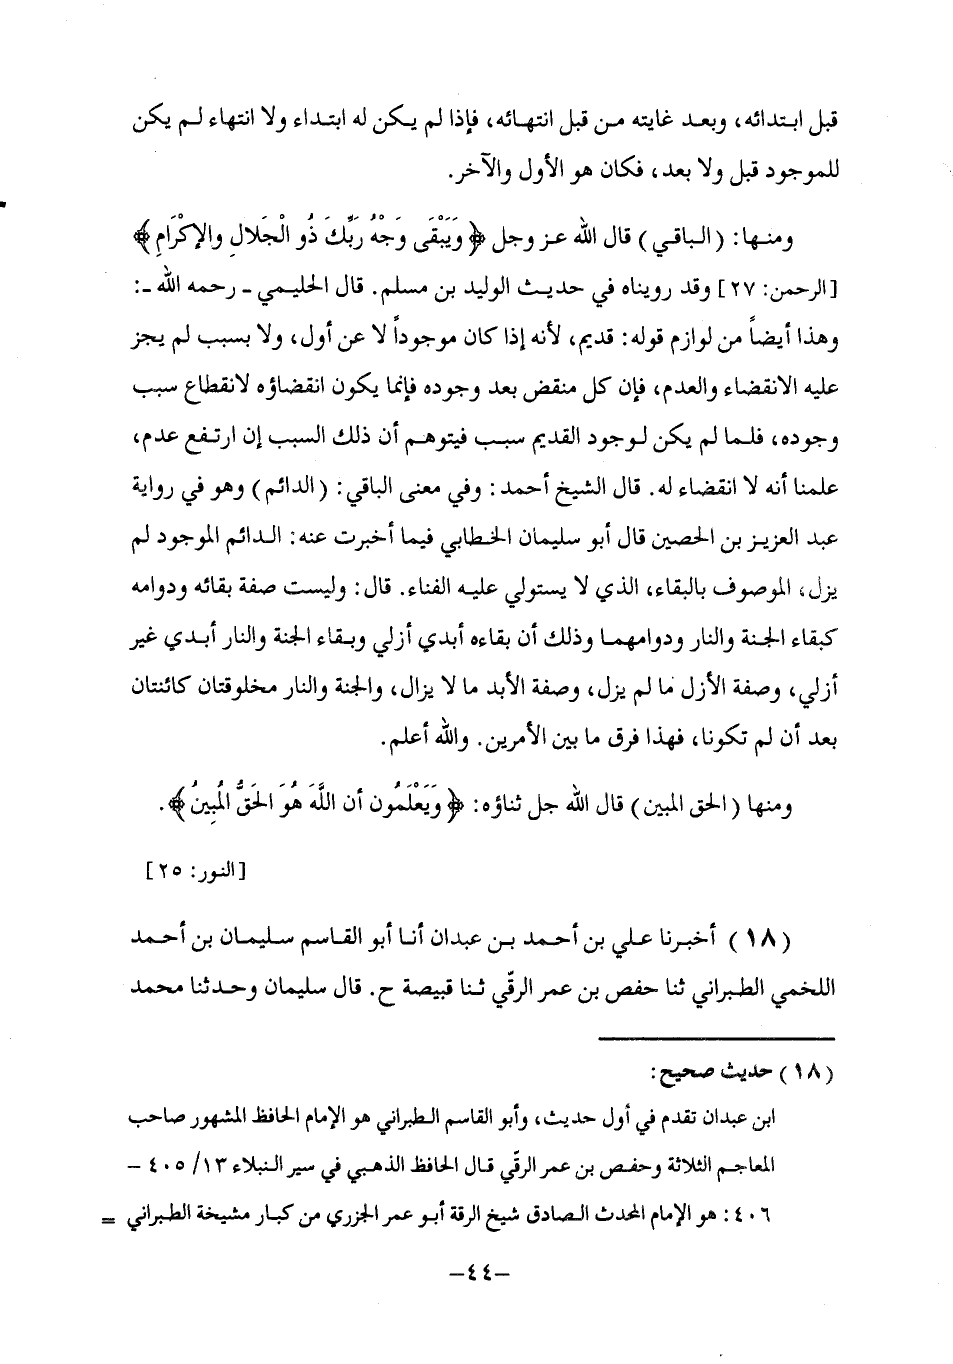 قبل ابتدائه، وبعد غايته من قبل انتهائه، فإذا لم يكن له ابتداء ولا انتهاء لم يكن
للموجود قبل ولا بعد، فكان هو الأول والآخر.
ومنها: (الباقي) قال الله عز وجل ﴿وَيَبْقَى وَجْهُ رَبِّكَ ذُو الْجَلالِ والإكْرَامِ﴾
[الرحمن: ٢٧] وقد رويناه في حديث الوليد بن مسلم. قال الحليمي ـ رحمه الله ـ:
وهذا أيضاً من لوازم قوله: قديم، لأنه إذا كان موجوداً لا عن أول، ولا بسبب لم يجز
عليه الانقضاء والعدم، فإن كل منقض بعد وجوده فإنما يكون انقضاؤه لانقطاع سبب
وجوده، فلما لم يكن لوجود القديم سبب فيتوهم أن ذلك السبب إن ارتفع عدم،
علمنا أنه لا انقضاء له. قال الشيخ أحمد: وفي معنى الباقي: (الدائم) وهو في رواية
عبد العزيز بن الحصين قال أبو سليمان الخطابي فيما أخبرت عنه: الدائم الموجود لم
يزل، الموصوف بالبقاء، الذي لا يستولي عليه الفناء. قال: وليست صفة بقائه ودوامه
كبقاء الجنة والنار ودوامهما وذلك أن بقاءه أبدي أزلي وبقاء الجنة والنار أبدي غير
أزلي، وصفة الأزل ما لم يزل، وصفة الأبد ما لا يزال، والجنة والنار مخلوقتان كائنتان
بعد أن لم تكونا، فهذا فرق ما بين الأمرين. والله أعلم.
ومنها (الحق المبين) قال الله جل ثناؤه: ﴿وَيَعْلَمُون أن اللَّهَ هُوَ الحَقُّ المُبِينُ﴾.
[النور: ٢٥]
(١٨) أخبرنا علي بن أحمد بن عبدان أنا أبو القاسم سليمان بن أحمد
اللخمي الطبراني ثنا حفص بن عمر الرقّي ثنا قبيصة ح. قال سليمان وحدثنا محمد
(١٨) حديث صحيح:
ابن عبدان تقدم في أول حديث، وأبو القاسم الطبراني هو الإمام الحافظ المشهور صاحب
المعاجم الثلاثة وحفص بن عمر الرقّي قال الحافظ الذهبي في سير النبلاء ١٣/ ٤٠٥ –
٤٠٦: هو الإمام المحدث الصادق شيخ الرقة أبو عمر الجزري من كبار مشيخة الطبراني =
–٤٤–